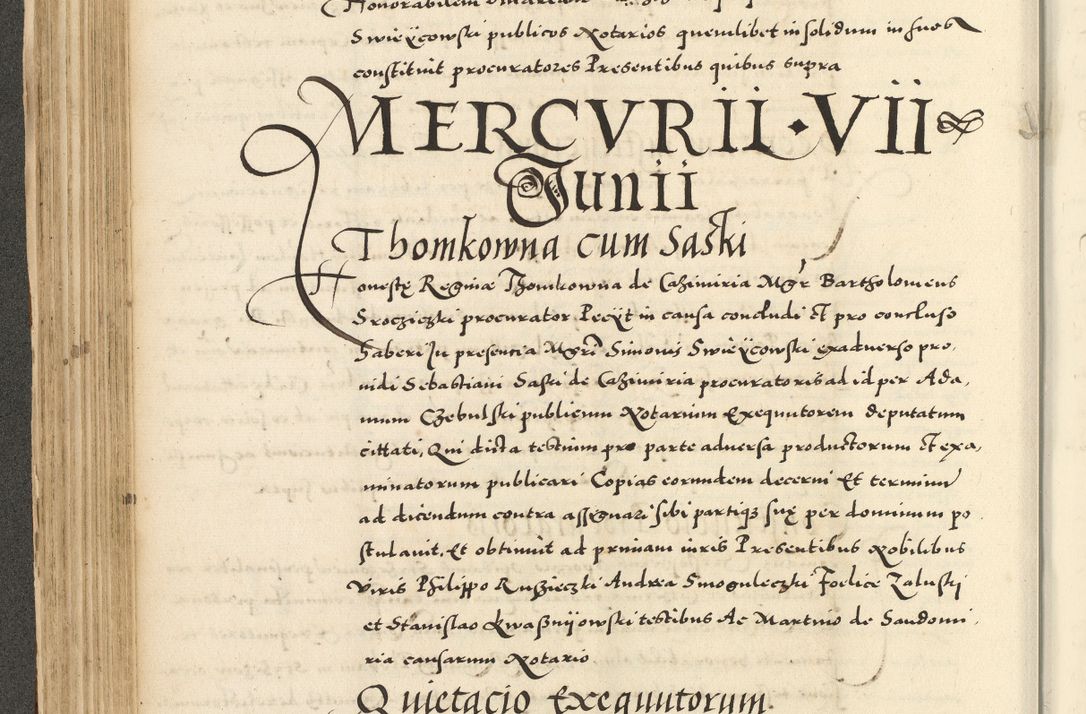 Swieÿcowski publicos Notarios quemlibet in solidum in suos
constituit procuratores Presentibus quibus supra
MERCVRII VII
Junii
Thomkowna cum Saski
Honestę Reginæ Thomkowna de Casimiria Mgr Bartholomeus
Sroczieczki procurator Pecÿt in causa concludi et pro concluso
haberi In presencia Mgri Simonis Swieÿcowski exadverso pro,
uidi Sebastiani Saski de Casimiria procuratoris ad id per Ada,
mum Czebulski publicum Notarium Exequutorem deputatum
cittati, Qui dicta testium pro parte adversa productorum et exa,
minatorum publicari Copias eorundem decerni Et terminum
ad dicendum contra assignari sibi partique suę per dominum po
stulauit, Et obtinuit ad primam iuris Presentibus Nobilibus
viris Philippo Ruszieczki Andrea Smoguleczki Foelice Zaluski
et Stanislao Kwasznÿowski testibus Ac Martino de Sandomi,
ria causarum Notario
Quietacio Exequutorum